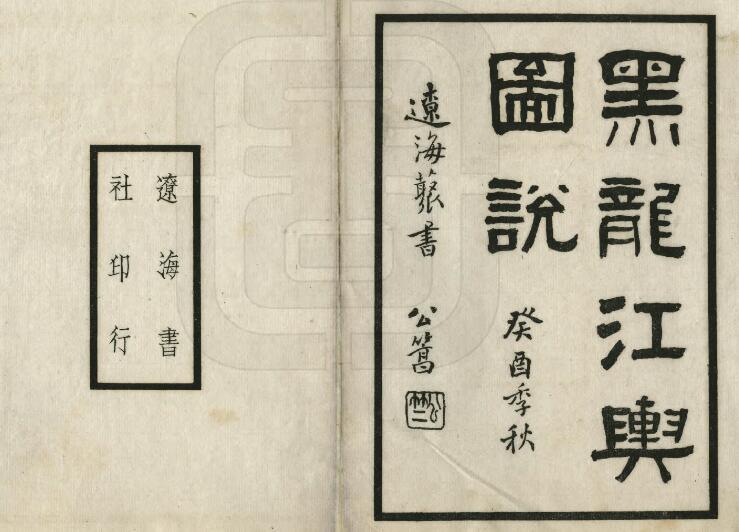 黑龍江輿
圖說
癸酉季秋
遼海藂書 公篙
遼海書
社印行